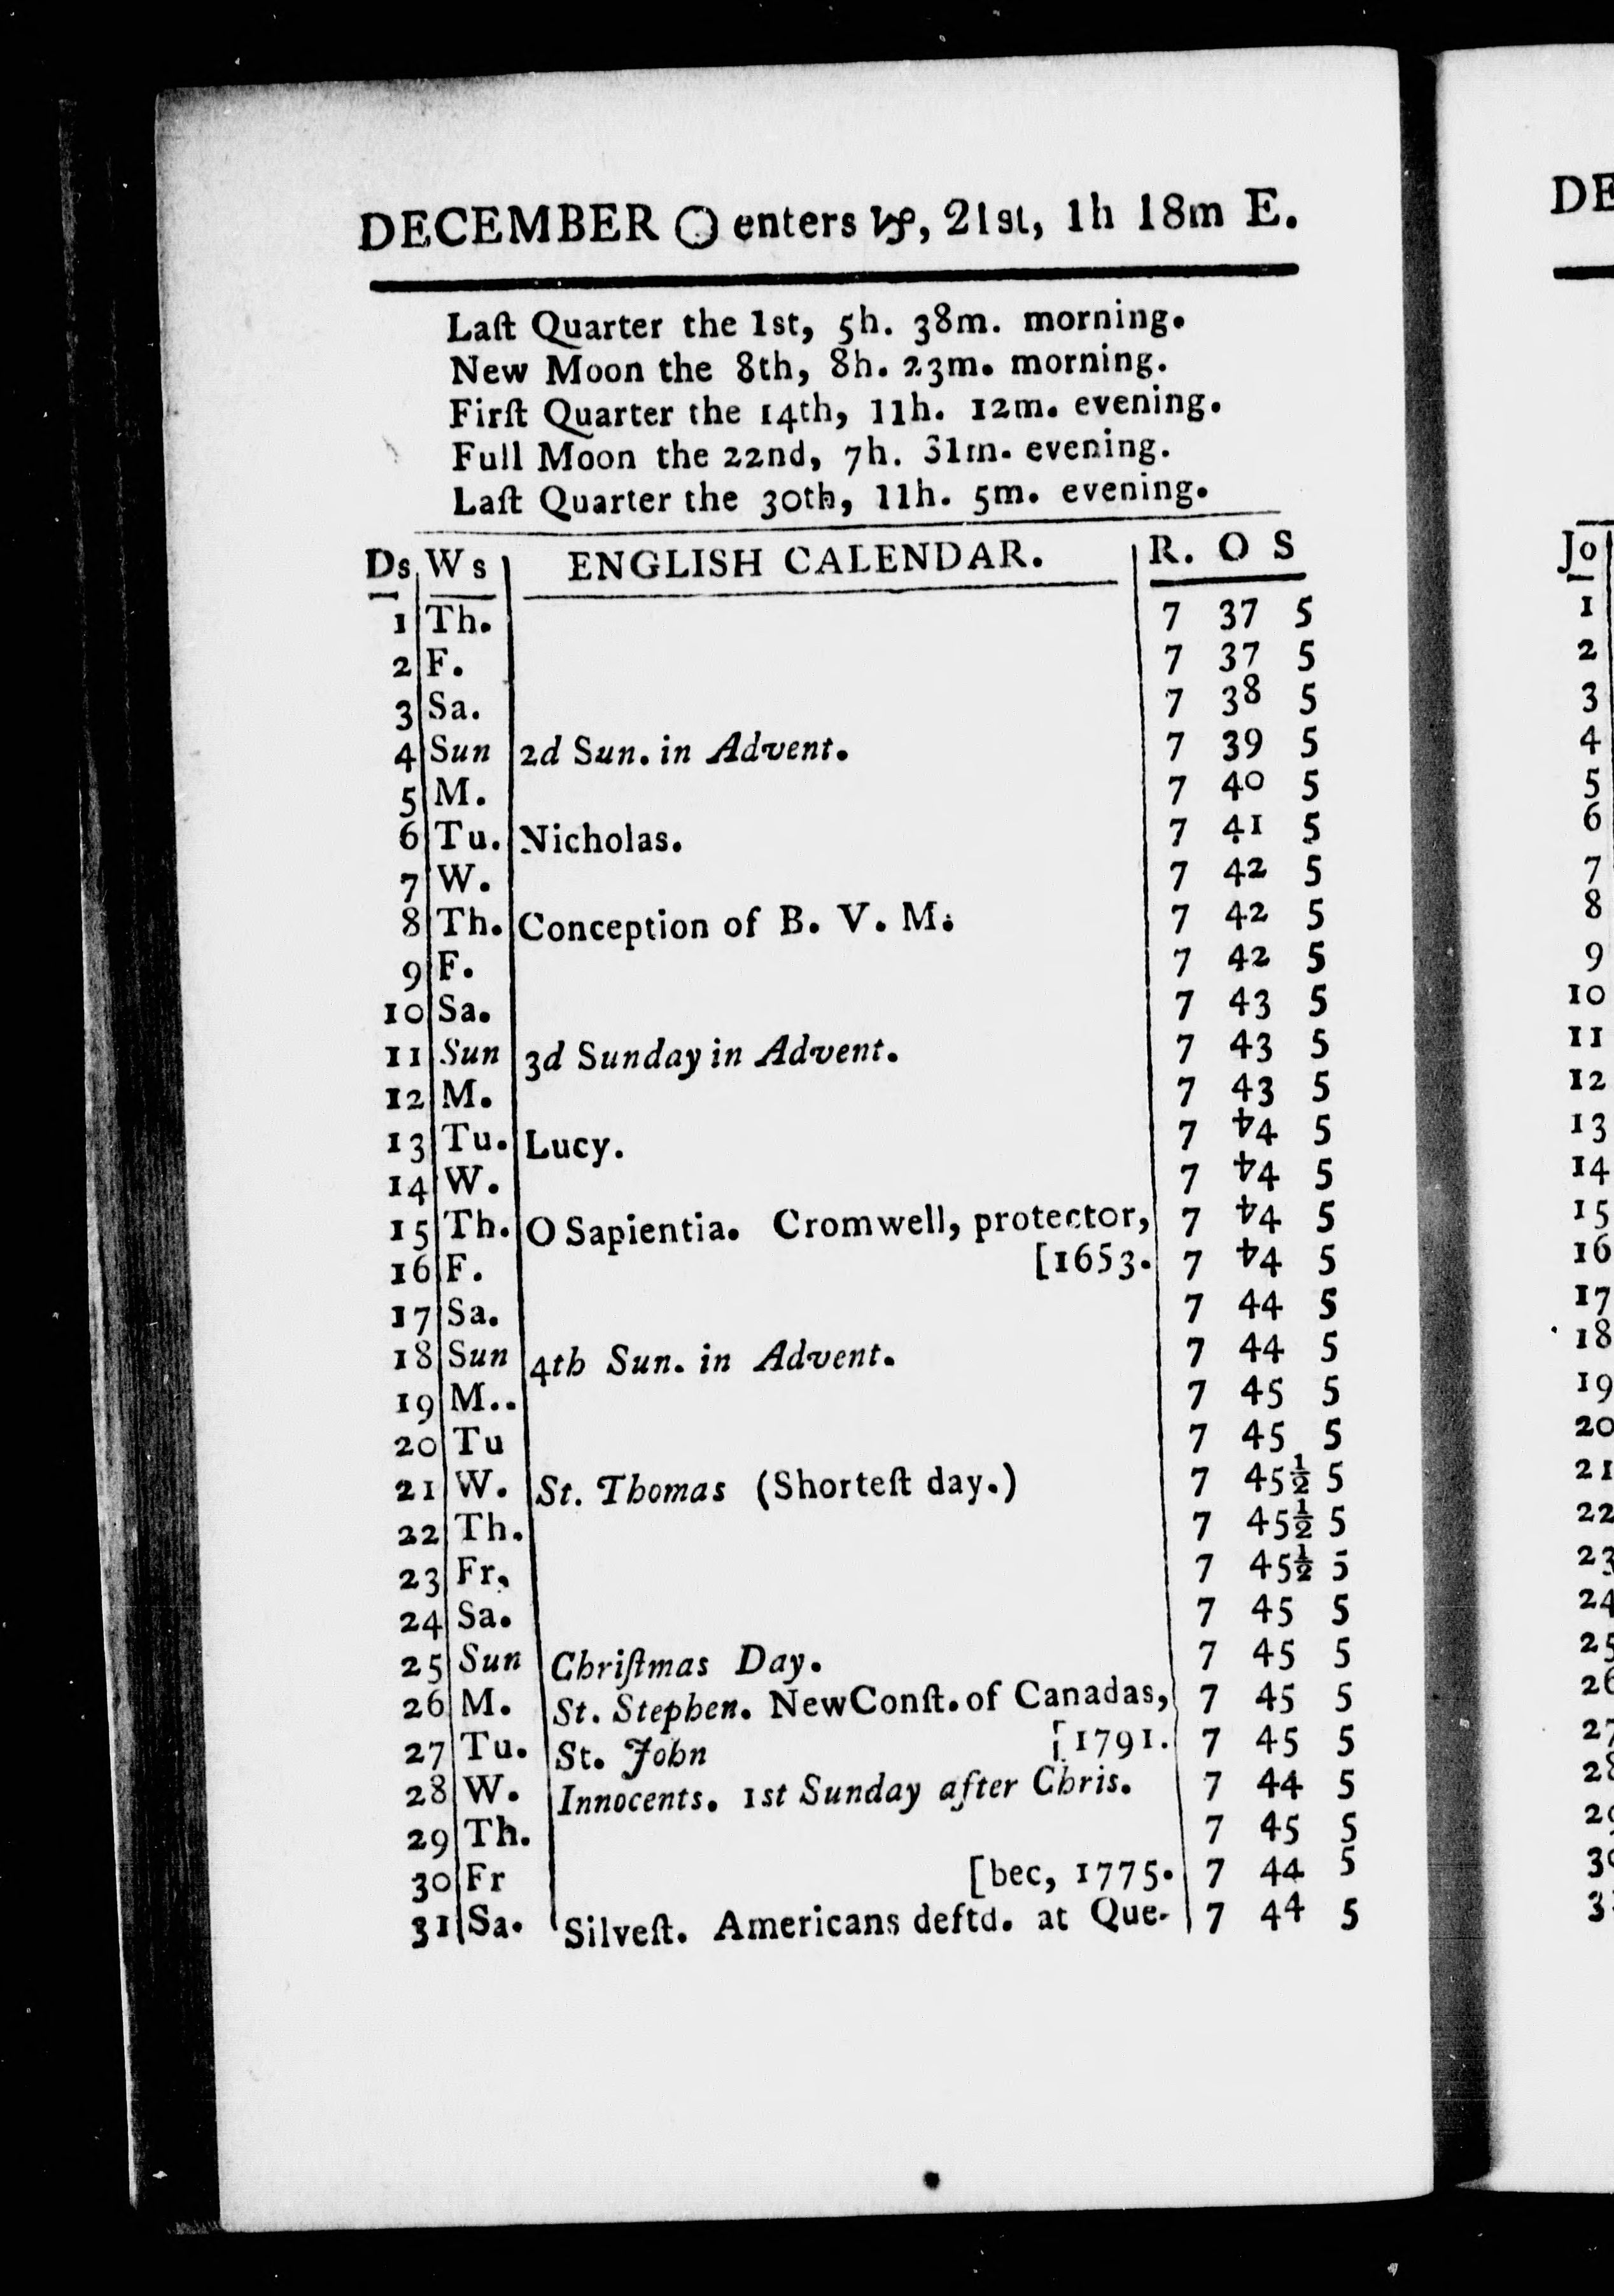 DECEMBER ☉ enters ♑, 21st, 1h 18m E.
Laſt Quarter the 1st, 5h. 38m. morning.
New Moon the 8th, 8h. 23m. morning.
Firſt Quarter the 14th, 11h. 12m. evening.
Full Moon the 22nd, 7h. 31m. evening.
Laſt Quarter the 30th, 11h. 5m. evening.
Ds Ws ENGLISH CALENDAR. R. O S
1 Th. 7 37 5
2 F. 7 37 5
3 Sa. 7 38 5
4 Sun 2d Sun. in Advent. 7 39 5
5 M. 7 40 5
6 Tu. Nicholas. 7 41 5
7 W. 7 42 5
8 Th. Conception of B. V. M. 7 42 5
9 F. 7 42 5
10 Sa. 7 43 5
11 Sun 3d Sunday in Advent. 7 43 5
12 M. 7 43 5
13 Tu. Lucy. 7 44 5
14 W. 7 44 5
15 Th. O Sapientia. Cromwell, protector, 7 44 5
16 F. [1653. 7 44 5
17 Sa. 7 44 5
18 Sun 4th Sun. in Advent. 7 44 5
19 M.. 7 45 5
20 Tu 7 45 5
21 W. St. Thomas (Shorteſt day.) 7 45½ 5
22 Th. 7 45½ 5
23 Fr, 7 45½ 5
24 Sa. 7 45 5
25 Sun Chriſtmas Day. 7 45 5
26 M. St. Stephen. NewConſt. of Canadas, 7 45 5
27 Tu. St. John [1791. 7 45 5
28 W. Innocents. 1st Sunday after Chris. 7 44 5
29 Th. 7 45 5
30 Fr [bec, 1775. 7 44 5
31 Sa. Silveſt. Americans deftd. at Que- 7 44 5
DE
Jo
1
2
3
4
5
6
7
8
9
10
11
12
13
14
15
16
17
18
19
20
21
22
23
24
25
26
27
28